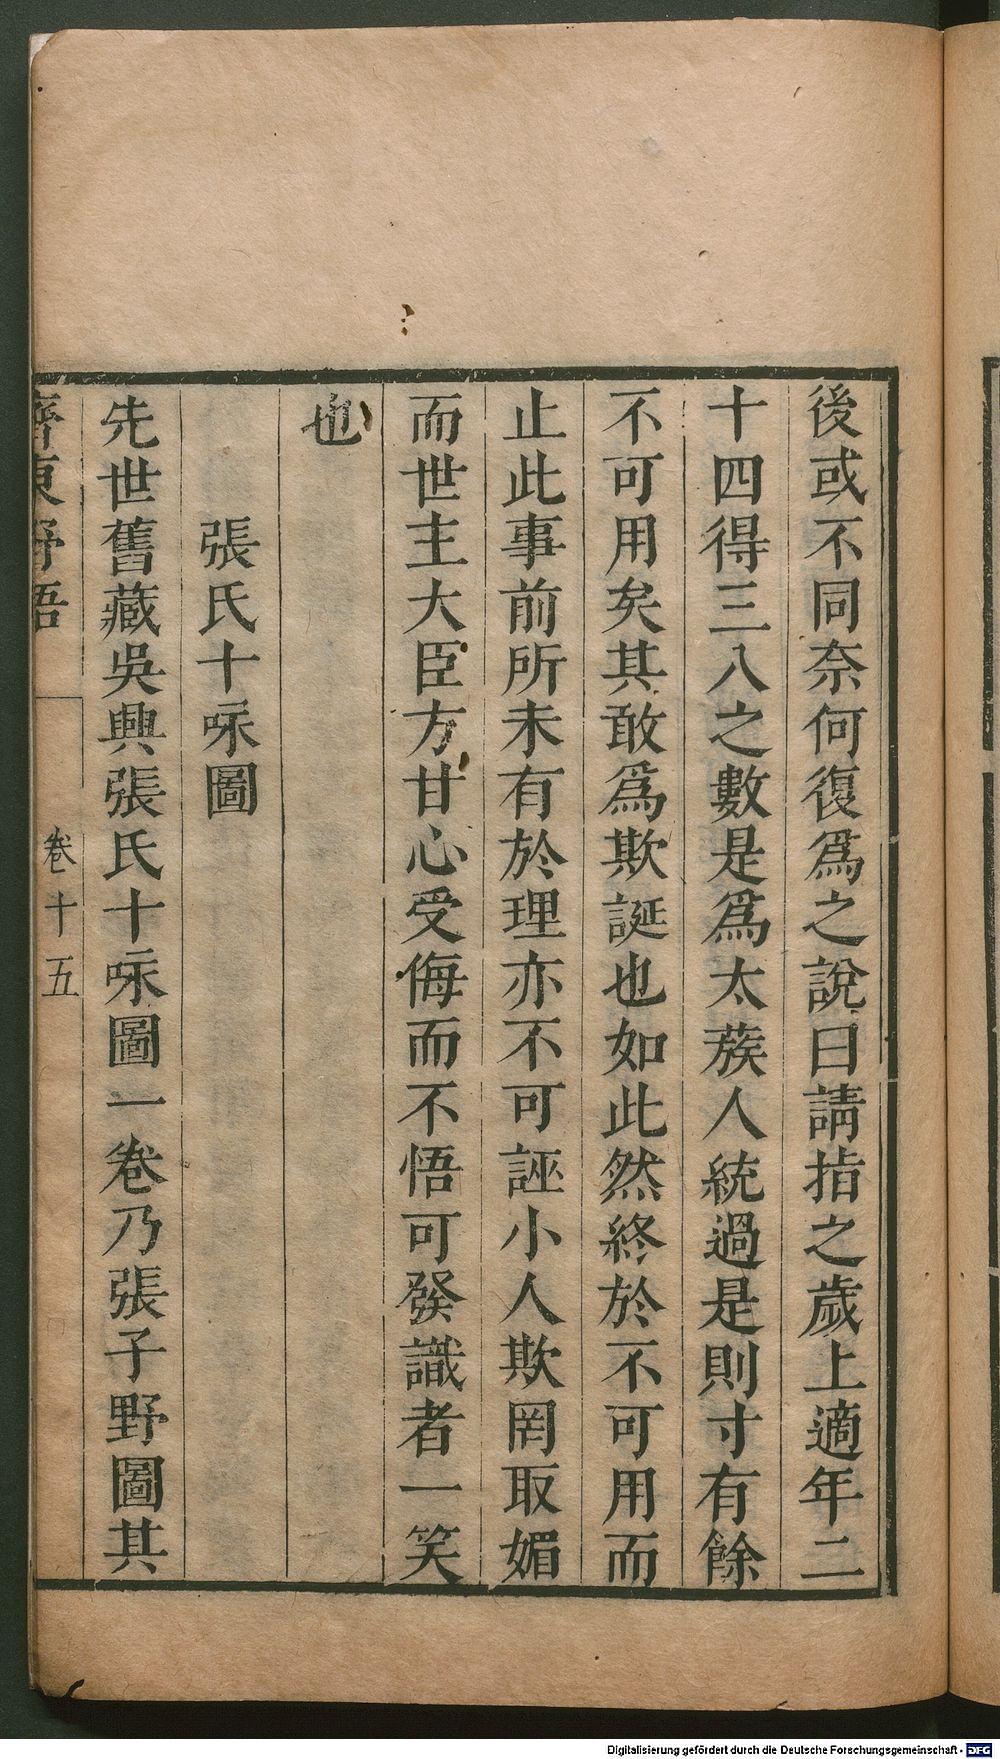 後或不同奈何復爲之說曰請指之歲上適年二
十四得三八之數是爲太蔟人統過是則寸有餘
不可用矣其敢爲欺誕也如此然終於不可用而
止此事前所未有於理亦不可誣小人欺罔取媚
而世主大臣方甘心受侮而不悟可發識者一笑
也
張氏十咏圖
先世舊藏吳興張氏十咏圖一卷乃張子野圖其
齊東野語
卷十五
Digitalisierung gefördert durch die Deutsche Forschungsgemeinschaft - DFG